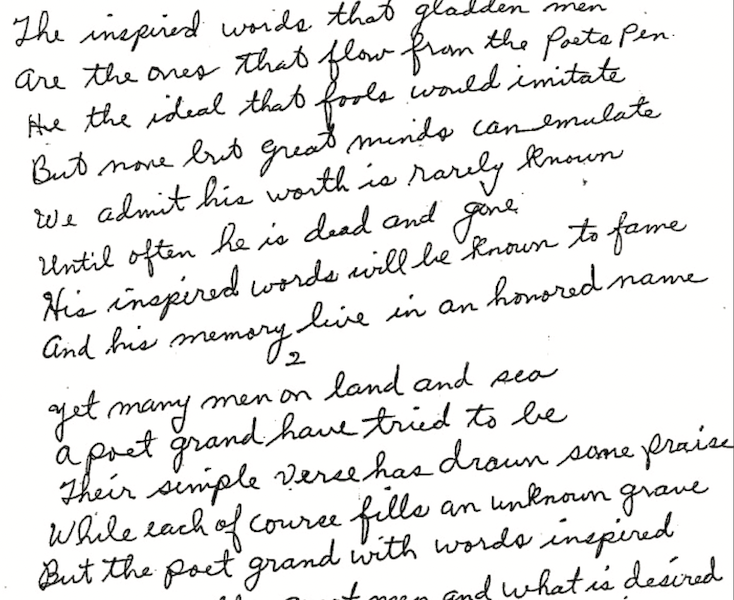 The inspired words that gladden men
are the ones that flow from the Poets Pen.
He the ideal that fools would imitate
But none but great minds can emulate
We admit his worth is rarely known
Until often he is dead and gone.
His inspired words will be known to fame
And his memory live in an honored name
2
yet many men on land and sea
a poet grand have tried to be
Their simple verse has drawn some praise
While each of course fills an unknown grave
But the poet grand with words inspired
men and what is desired